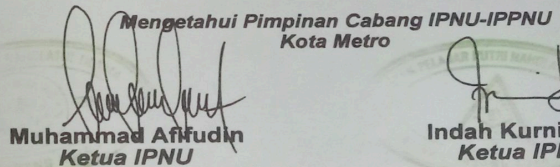 Mengetahui Pimpinan Cabang IPNU-IPPNU
Kota Metro
Muhammad Afifudin
Ketua IPNU
Indah Kurni
Ketua IP